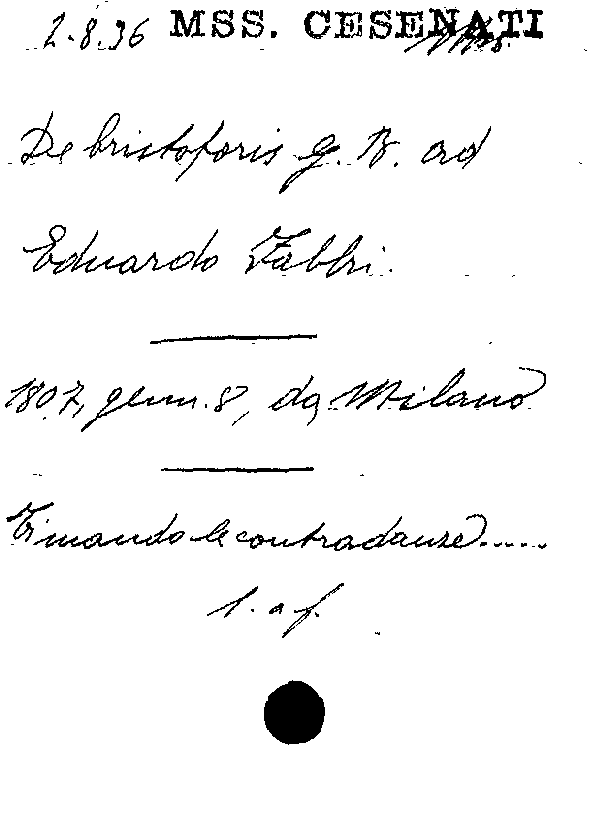 2.8.36 MSS. CESENATI
De Cristoforis G. B. ad
Eduardo Fabbri.
1807, genn. 8, da Milano
le contradanze.....
l. a f.